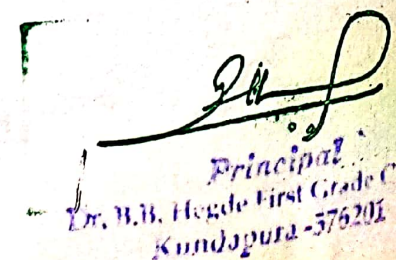 Principal
Dr. B.B. Hegde First Grade C
Kundapura -576201